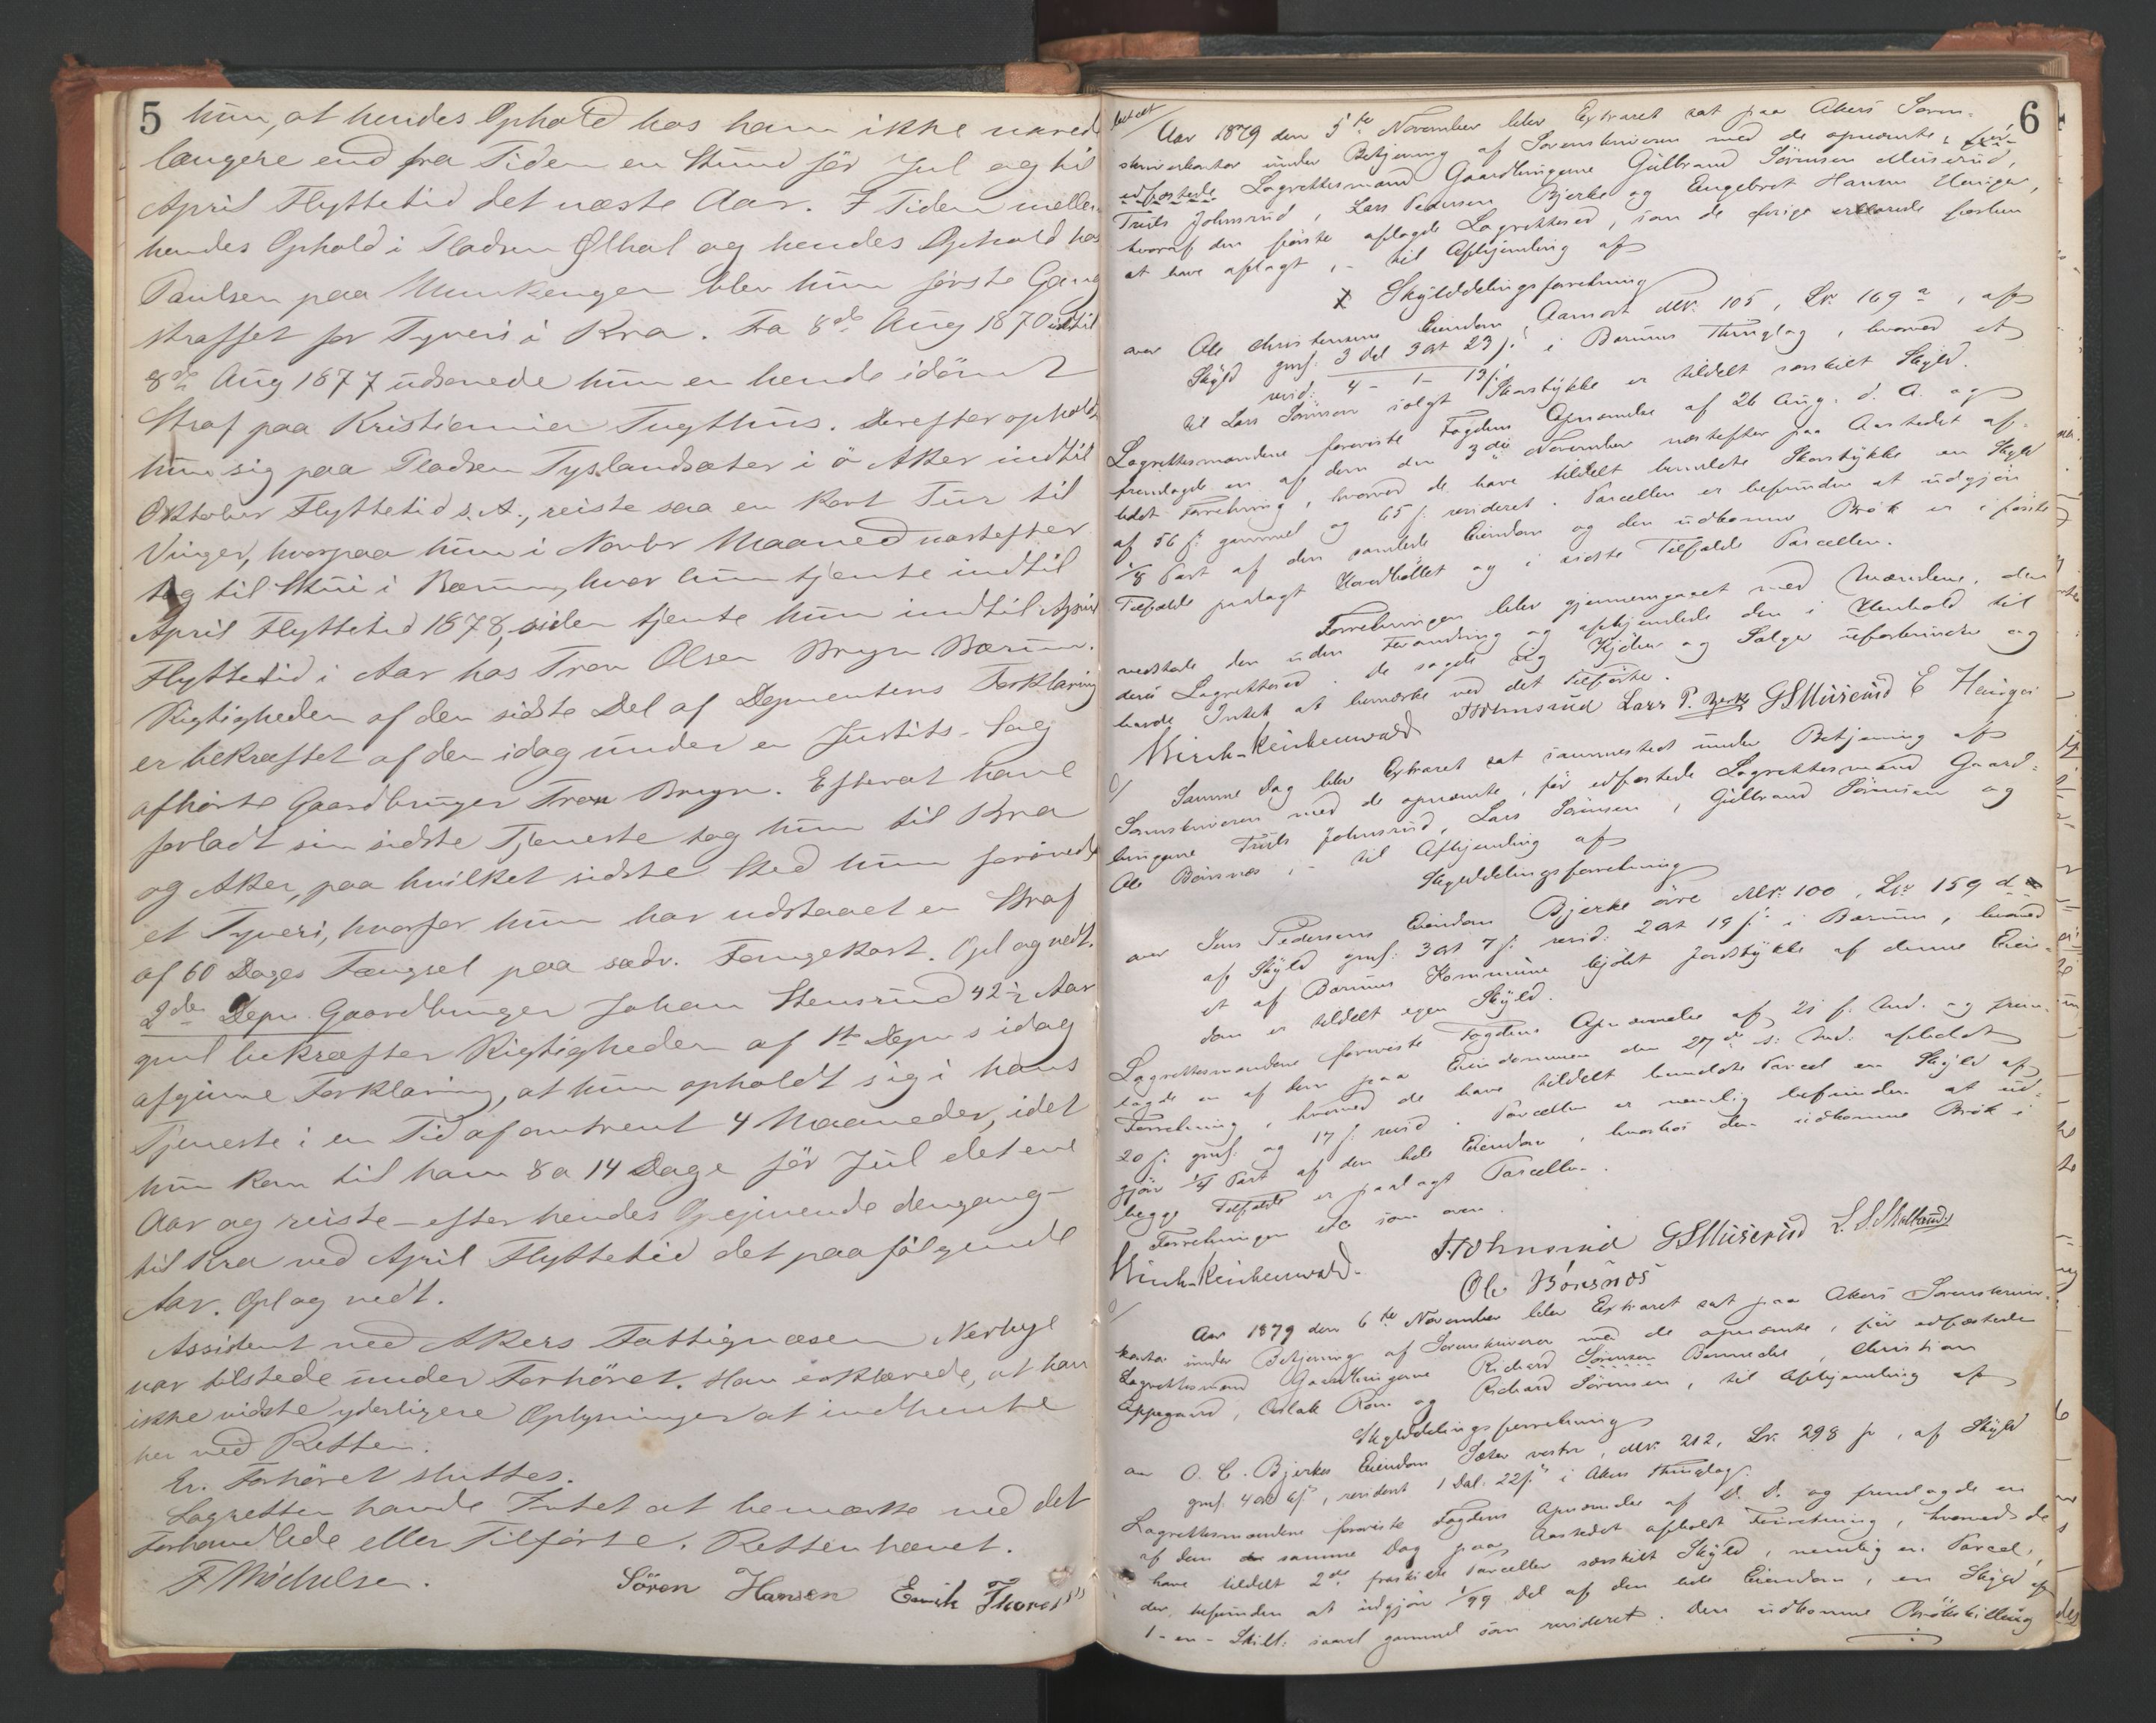 5
hun, at hendes Ophold hos ham ikke varede
længere end fra Tiden en Stund før Jul og til
April Flyttetid det næste Aar. I Tiden mellem
hendes Ophold i Pladsen Ølhal og hendes Ophold hos
Paulsen paa Munkengen blev hun første Gang
straffet for Tyveri i Kra. Fra 8de Aug 1870 indtil
8de Aug 1877 udsonede hun en hende idømt
Straf paa Kristiania Tugthus. Derefter opholdt
hun sig paa Pladsen Tyslandsæter i ø Aker indtil
Oktober Flyttetid s. A., reiste saa en kort Tur til
Vinger, hvorpaa hun i Novbr Maaned næstefter
tog til Stui i Bærum, hvor hun tjente indtil
April Flyttetid 1878, siden tjente hun indtil April
Flyttetid i Aar hos Tron Olsen Bryn Bærum.
Rigtigheden af den sidste Del af Deponentens Forklaring
er bekræftet af den idag under en Justits-Sag
afhørte Gaardbruger Tron Bryn. Efterat have
forladt sin sidste Tjeneste tog hun til Kra
og Aker, paa hvilket sidste Sted hun forøvede
et Tyveri, hvorfor hun har udstaaet en Straf
af 60 Dages Fængsel paa sædv. Fangekost. Opl og vedt.
2den Depn Gaardbruger Johan Stensrud 42½ Aar
gml bekræfter Rigtigheden af 1ste Depns idag
afgivne Forklaring, at hun opholdt sig i hans
Tjeneste i en Tid af omtrent 4 Maaneder, idet
hun kom til ham 8 a 14 Dage før Jul det ene
Aar og reiste - efter hendes Opgivende dengang -
til Kra ved April Flyttetid det paafølgende
Aar. Opl og vedt.
Assistent ved Akers Fattigvæsen Nerbye
var tilstede under Forhøret. Han erklærede, at han
ikke vidste yderligere Oplysninger at indhente
her ved Retten.
Er. Forhøret sluttes.
Lagretten havde Intet at bemærke ved det
Forhandlede eller Tilførte. Retten hævet.
F Michelsen. Søren Hansen Emik
6
Aar 1879 den 5te November blev Extraret sat paa Akers Soren-
skriverkontor under Betjening af Sorenskriveren med de opnævnte, før
edfæstede Lagrettesmænd Gaardbrugerne Gulbrand Sørensen Muserud,
Truls Johnsrud, Lars Pedersen Bjerke og Engebret Hansen Hauger,
hvoraf den første aflagde Lagrettesed, som de øvrige erklærede forhen
at have aflagt, - til Afhjemling af
Skylddelingsforretning
over Ole Christensens Eiendom Aamodt MNr. 105, LNr. 169 a, af
Skyld gml: 3 dal 3 ort 23 s. i Bærums Thinglag, hvorved et
revid: 4 - 1 - 13 s.
til Lars Sørensen solgt Skovstykke er tildelt særskilt Skyld.
Lagrettesmændene foreviste Fogdens Opnævnelse af 26 Aug. d. A. og
fremlagde en af dem den 3die November næstefter paa Aastedet af-
holdt Forretning, hvorved de have tildelt bemeldte Skovstykke en Skyld
af 56 s. gammel og 65 s. revideret. Parcellen er befunden at udgjøre
1/8 Part af den samlede Eiendom og den udkomne Brøk er i første
Tilfælde paalagt Hovedbøllet og i sidste Tilfælde Parcellen.
Forretningen blev gjennemgaaet med Mændene, der
vedstode den uden Forandring og afhjemlede den i Henhold til
deres Lagrettesed. De sagde sig Kjøber og Sælger uforbundne og
havde Intet at bemærke ved det Tilførte.
Hirsch-Reichenwald TJohnsrud Lars P. Bjerke GSMuserud E Hauger
Samme Dag blev Extraret sat sammesteds under Betjening af
Sorenskriveren med de opnævnte, før edfæstede Lagrettesmænd Gaard-
brugerne Truls Johnsrud, Lars Sørensen, Gulbrand Sørensen og
Ole Børsnæs, - til Afhjemling af
Skylddelingsforretning
over Jens Pedersens Eiendom Bjerke øvre MNr. 100, LNr. 159 d
af Skyld gml: 3 ort 7 s. revid: 2 ort 19 s. i Bærum, hvorved
et af Bærums Kommune kjøbt Jordstykke af denne Eien-
dom er tildelt egen Skyld.
Lagrettesmændene foreviste Fogdens Opnævnelse af 21 f. Md. og frem-
lagde en af dem paa Eiendommen den 27de s. Md. afholdt
Forretning, hvorved de have tildelt bemeldte Parcel en Skyld af
20 s. gml. og 17 s. revid. Parcellen er nemlig befunden at ud-
gjøre Part af den hele Eiendom, hvorhos den udkomne Brøk i
begge Tilfælde er paalagt Parcellen.
Forretningen etc som oven.
Hirsch-Reichenwald. TJohnsrud GSMuserud
Ole Børsnæs
Aar 1879 den 6te November blev Extraret sat paa Akers Sorenskriver-
kontor under Betjening af Sorenskriveren med de opnævnte, før edfæstede
Lagrettesmænd Gaardbrugerne Richard Sørensen, Christian
Oppegaard, Aslak Roen og Richard Sørensen, til Afhjemling af
Skylddelingsforretning
over O. C. Bjerkes Eiendom Sæter vestre, MNr. 212, LNr. 298, af Skyld
gml. 4 ort 6 s, revideret 1 Dal. 22 s. i Akers Thinglag.
Lagrettesmændene foreviste Fogdens Opnævnelse af D. D. og fremlagde en
af dem samme Dag paa Aastedet afholdt Forretning, hvorved de
have tildelt 2de fraskilte Parceller særskilt Skyld, nemlig en Parcel,
der befunden at udgjøre 1/99 Del af den hele Eiendom, en Skyld af
1 - en - Skill: saavel gammel som revideret. Den udkomne Brøkskilling